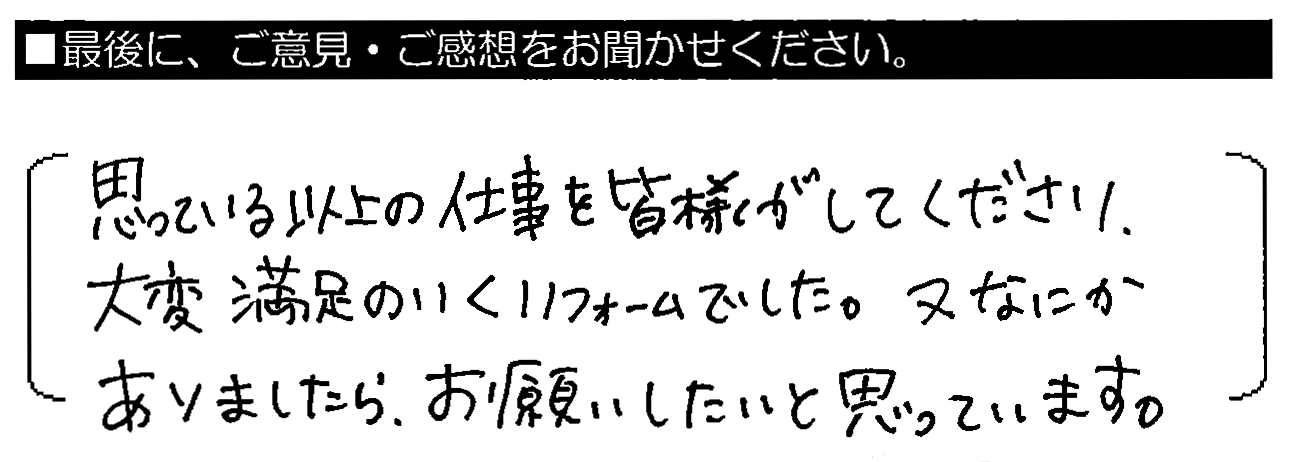 ■最後に、ご意見・ご感想をお聞かせください。
思っている以上の仕事を皆様がしてくださり、
大変満足のいくリフォームでした。又なにか
ありましたら、お願いしたいと思っています。